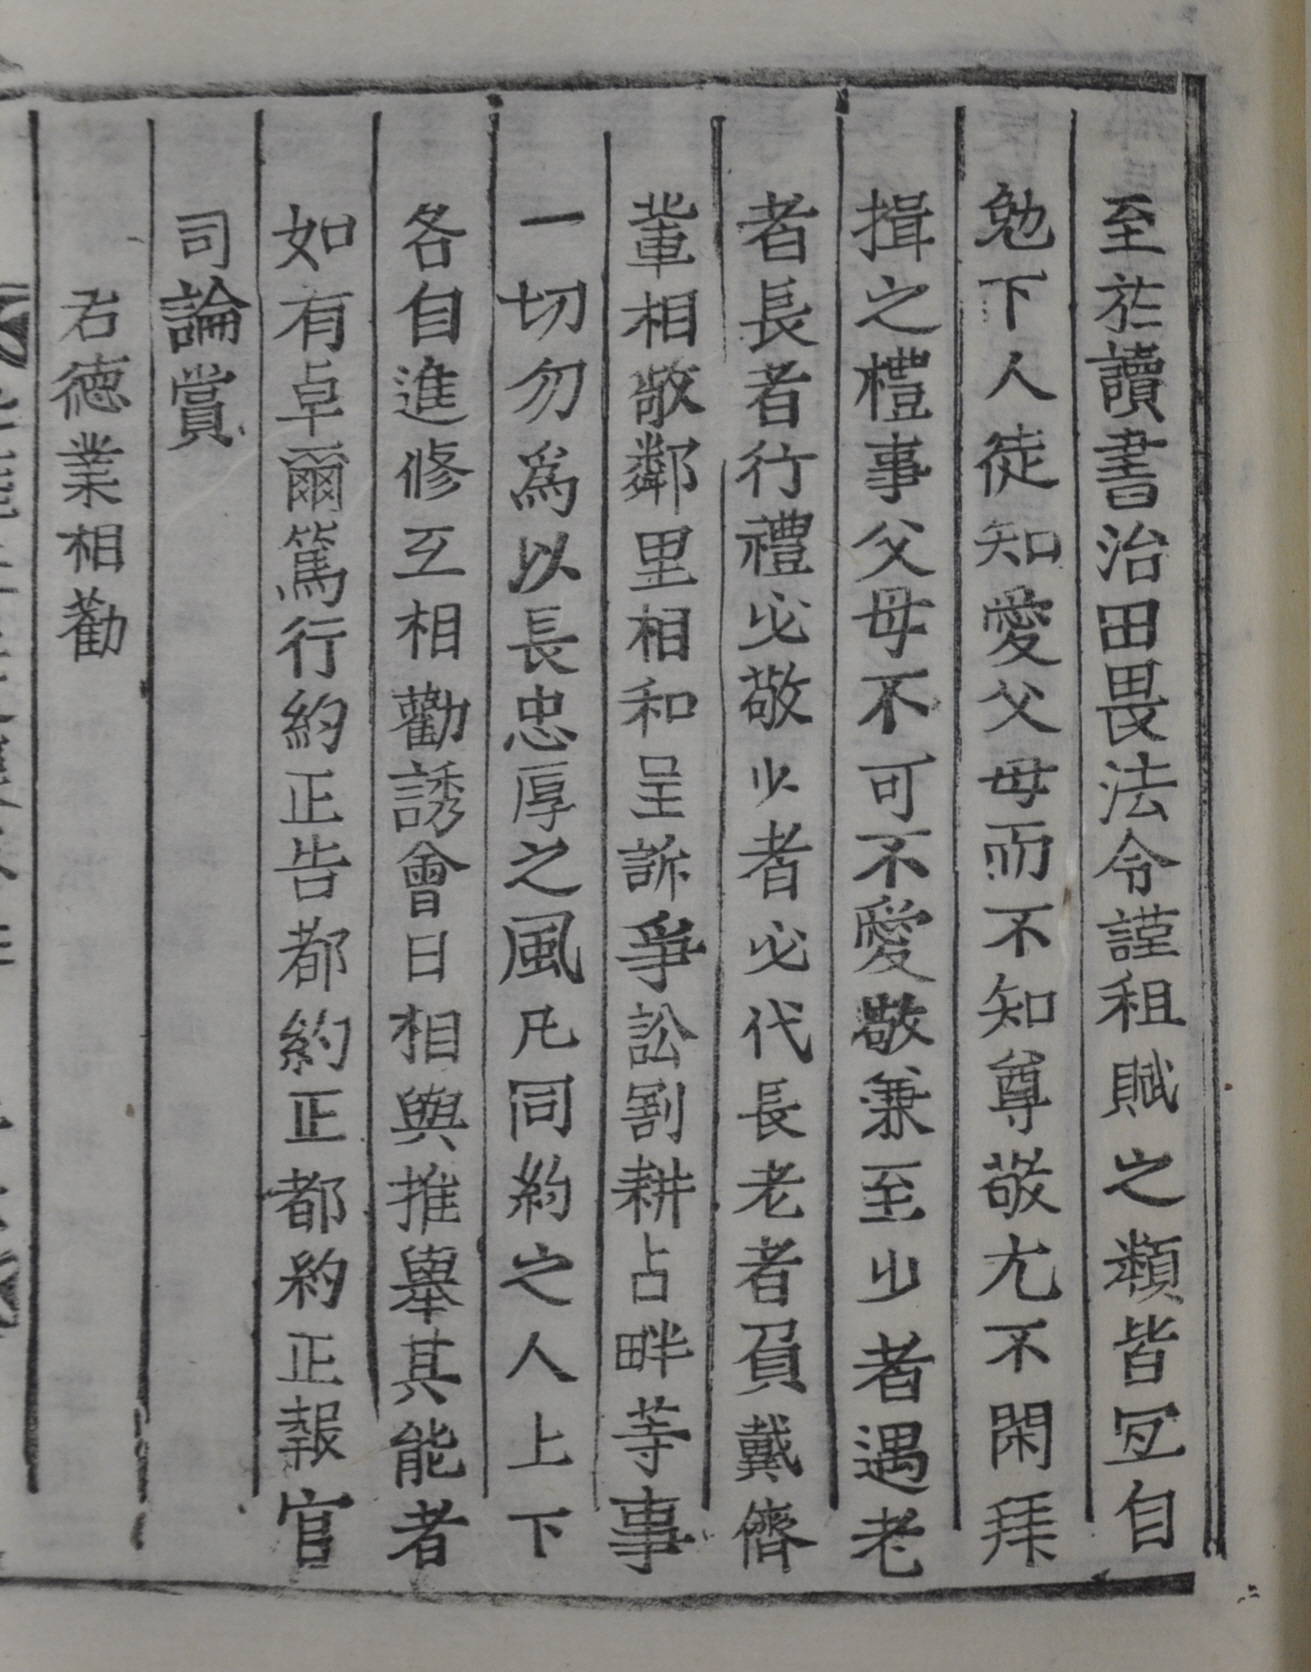 至於讀書治田畏法令謹租賦之類皆冝自
勉下人徒知愛父母而不知尊敬尤不閑拜
揖之禮事父母不可不愛敬兼至少者遇老
者長者行禮必敬少者必代長老者負戴儕
輩相敬鄰里相和呈訴爭訟割耕占畔等事
一切勿爲以長忠厚之風凡同約之人上下
各自進修互相勸誘會日相與推擧其能者
如有卓爾篤行約正告都約正都約正報官
司論賞
右德業相勸